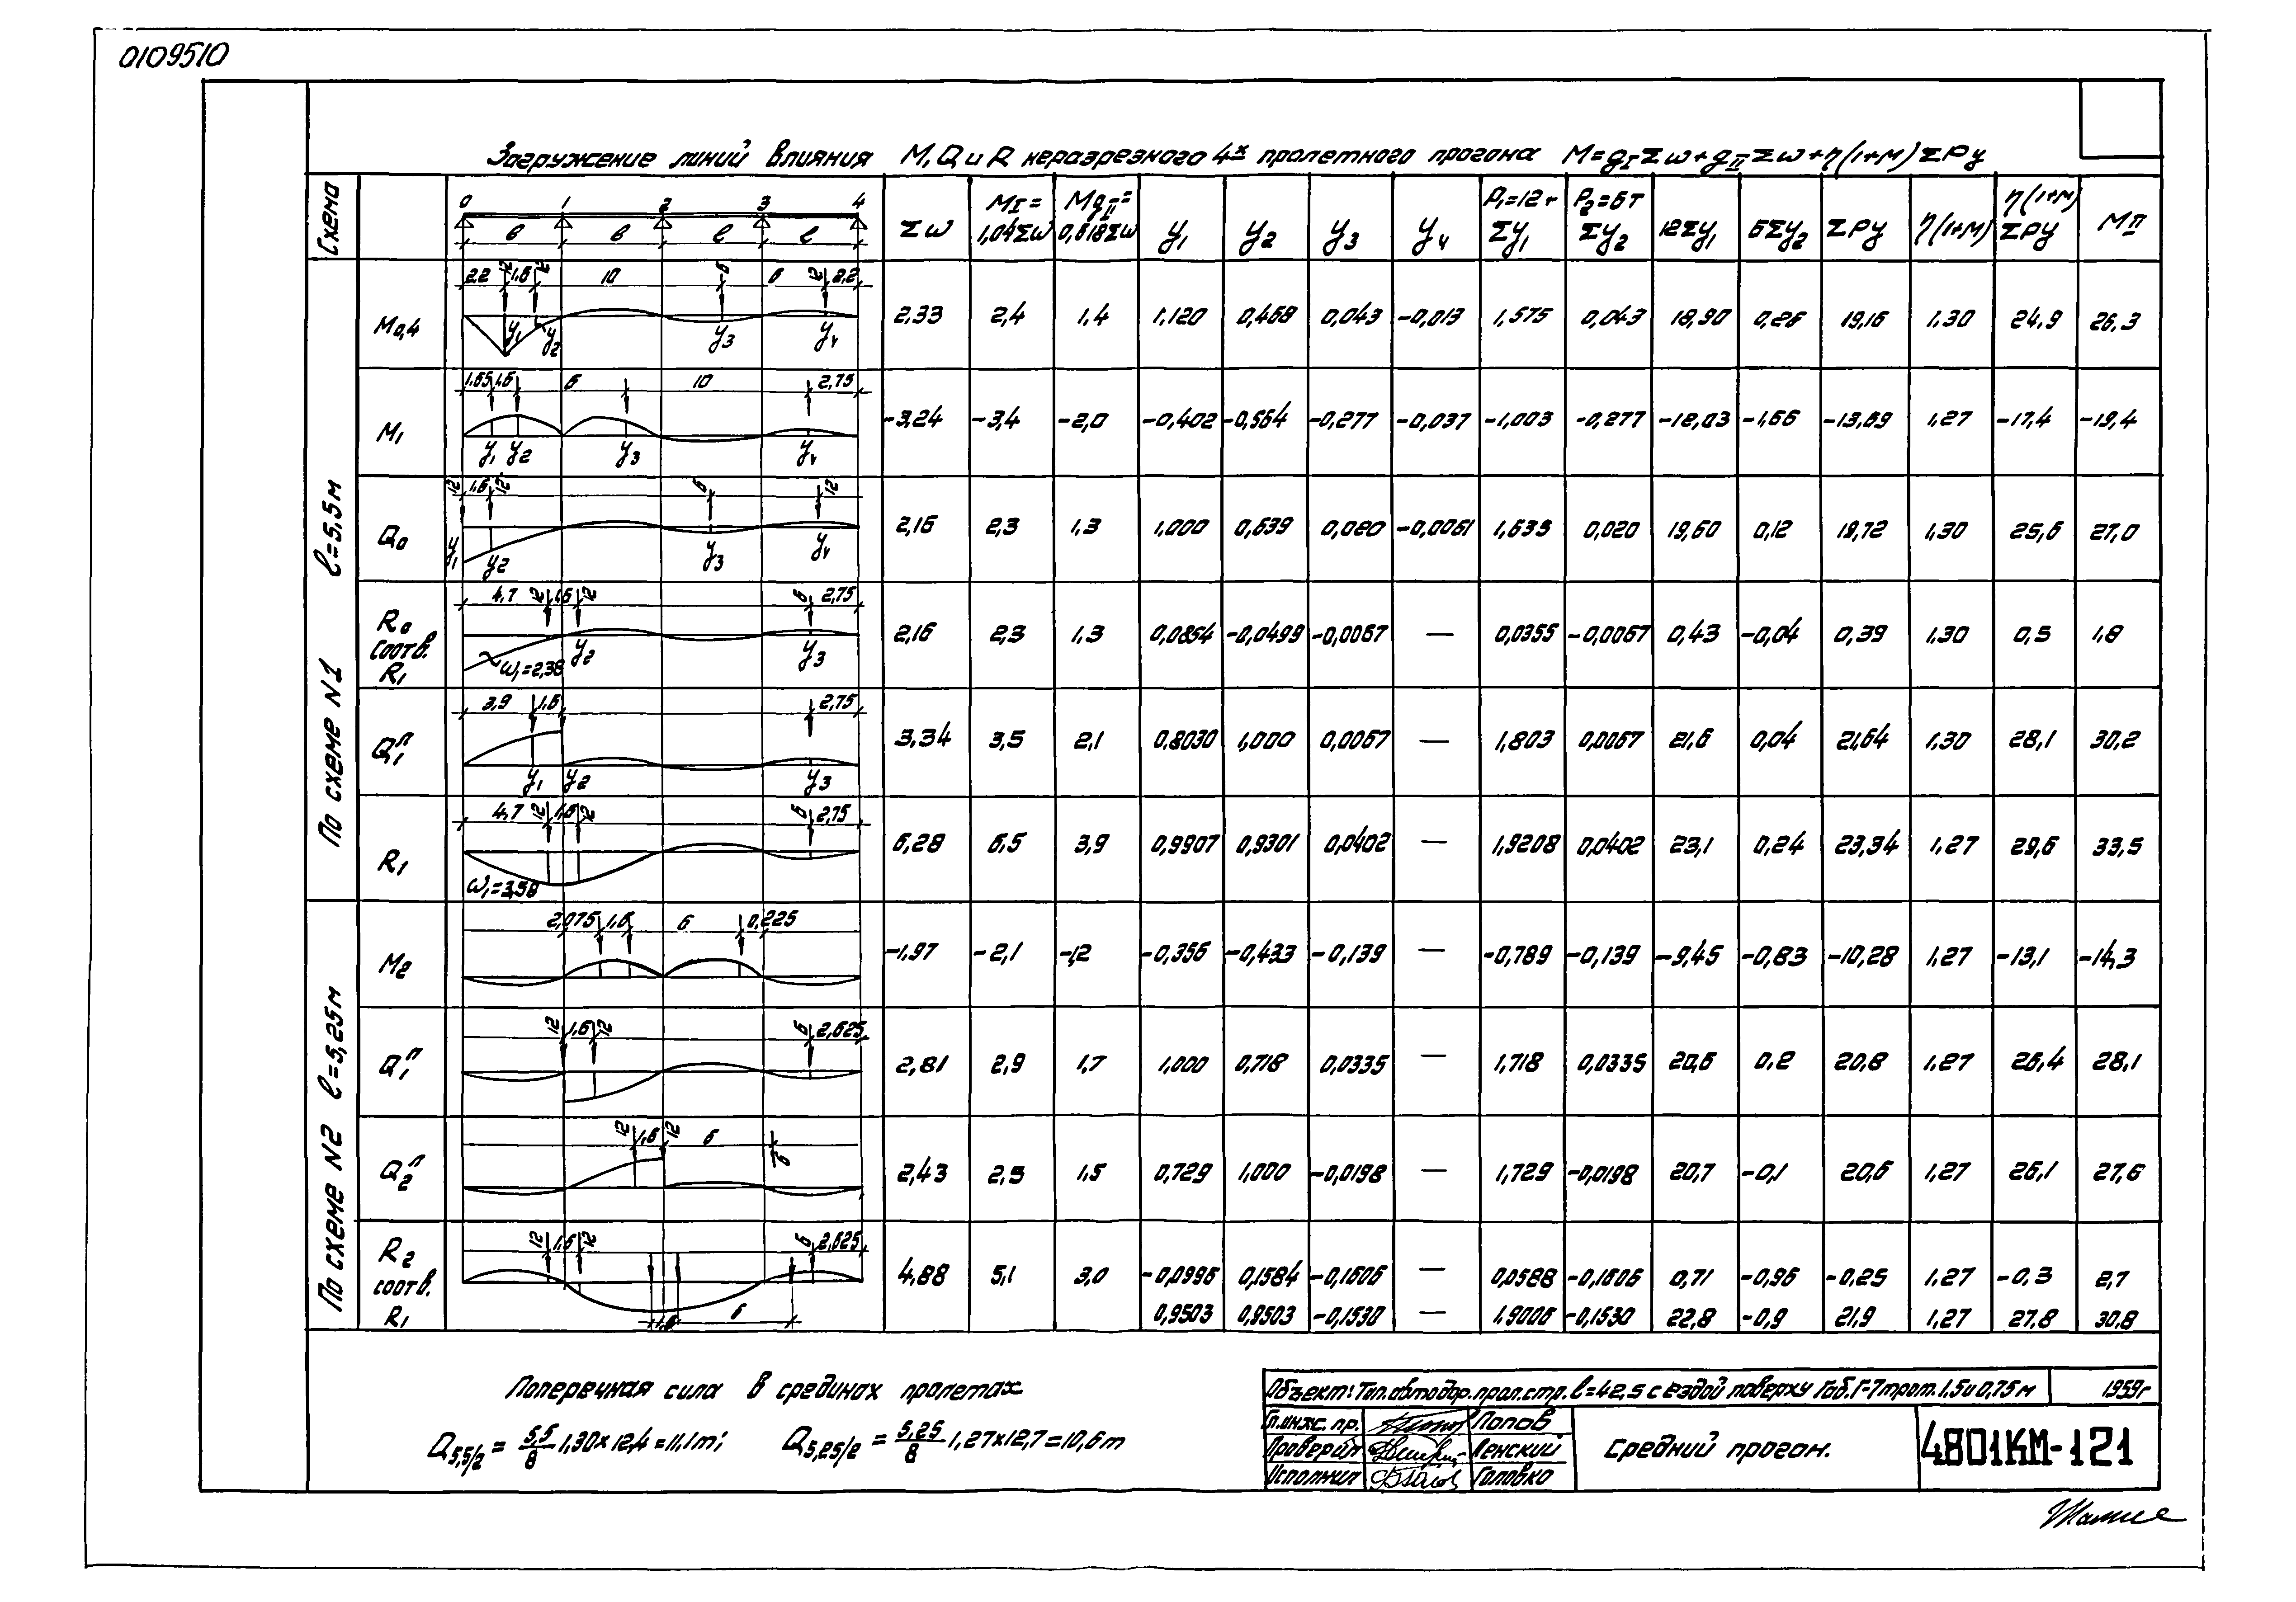 0109510
Загружение линий влияния М, Q и R неразрезного 4х пролетного прогона M=gI Σω+gII Σω+η(1+м) ΣPy
Схема
0 1 2 3 4
в в l l
Σω
MI= 1,04Σω
MgII= 0,618Σω
y1
y2
y3
y4
P1=12т Σy1
P2=6т Σy2
12Σy1
6Σy2
ΣPy
η(1+м)
η(1+м) ΣPy
MII
По схеме N1 l=5,5м
M0,4
2,2 12 1,6 12 10 6 6 12 2,2
y1 y2 y3 y4
2,33 2,4 1,4 1,120 0,468 0,043 -0,013 1,575 0,043 18,90 0,26 19,16 1,30 24,9 26,3
M1
1,65 1,6 6 10 2,75
y1 y2 y3 y4
-3,24 -3,4 -2,0 -0,402 -0,564 -0,277 -0,037 -1,003 -0,277 -12,03 -1,66 -13,69 1,27 -17,4 -19,4
Q0
12 1,6 12 6 12
y1 y2 y3 y4
2,16 2,3 1,3 1,000 0,639 0,020 -0,0061 1,633 0,020 19,60 0,12 19,72 1,30 25,6 27,0
R0 соотв. R1
4,7 12 1,6 12 6 2,75
ω1=2,38 y2 y3
2,16 2,3 1,3 0,0854 -0,0499 -0,0067 — 0,0355 -0,0067 0,43 -0,04 0,39 1,30 0,5 1,8
Q1л
3,9 1,6 2,75
y1 y2 y3
3,34 3,5 2,1 0,8030 1,000 0,0067 — 1,803 0,0067 21,6 0,04 21,64 1,30 28,1 30,2
R1
4,7 12 1,6 12 6 2,75
ω1=3,58
6,28 6,5 3,9 0,9907 0,9301 0,0402 — 1,9208 0,0402 23,1 0,24 23,34 1,27 29,6 33,5
По схеме N2 l=5,25м
M2
2,075 1,6 6 0,225
-1,97 -2,1 -1,2 -0,356 -0,433 -0,139 — -0,789 -0,139 -9,45 -0,83 -10,28 1,27 -13,1 -14,3
Q1п
12 1,6 12 6 2,625
2,81 2,9 1,7 1,000 0,718 0,0335 — 1,718 0,0335 20,6 0,2 20,8 1,27 26,4 28,1
Q2л
12 1,6 12 6 6
2,43 2,5 1,5 0,729 1,000 -0,0198 — 1,729 -0,0198 20,7 -0,1 20,6 1,27 26,1 27,6
R2 соотв. R1
12 1,6 12 6 2,625
4,88 5,1 3,0 -0,0996 0,1584 -0,1606 — 0,0588 -0,1606 0,71 -0,96 -0,25 1,27 -0,3 2,7
1,6 6
0,9503 0,9503 -0,1530 — 1,9006 -0,1530 22,8 -0,9 21,9 1,27 27,8 30,8
Поперечная сила в срединах пролетах
Q5,5/2 = 5,5/8 1,30×12,4=11,1т; Q5,25/2 = 5,25/8 1,27×12,7=10,6т
Объект: Тип.автодор.прол.стр. l=42,5 с ездой поверху Габ.Г-7 трот. 1.5 и 0,75м 1959г
Гл.инж. пр. Попов
Проверил Ленский
Исполнил Головко
Средний прогон.
4801КМ-121